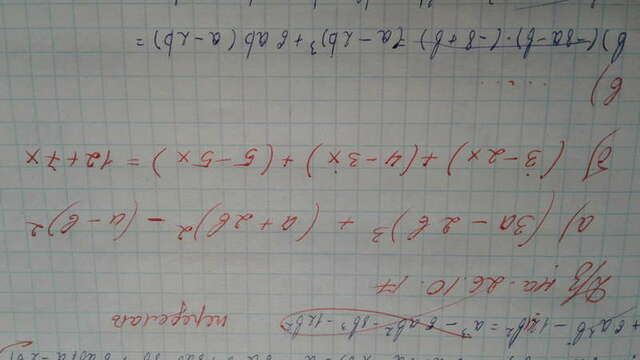 + 6a²b - 12ab² = a³ - 6ab² - 8b³ - 12b²
переделать
Д/з на 26.10.17
а) (3a - 2b)³ + (a + 2b)² - (a - b)²
б) (3 - 2x) + (4 - 3x) + (5 - 5x) = 12 + 7x
в) .....
в) (-8a - b) · (-8 + b) (a - 2b)³ + 6ab (a - 2b) =